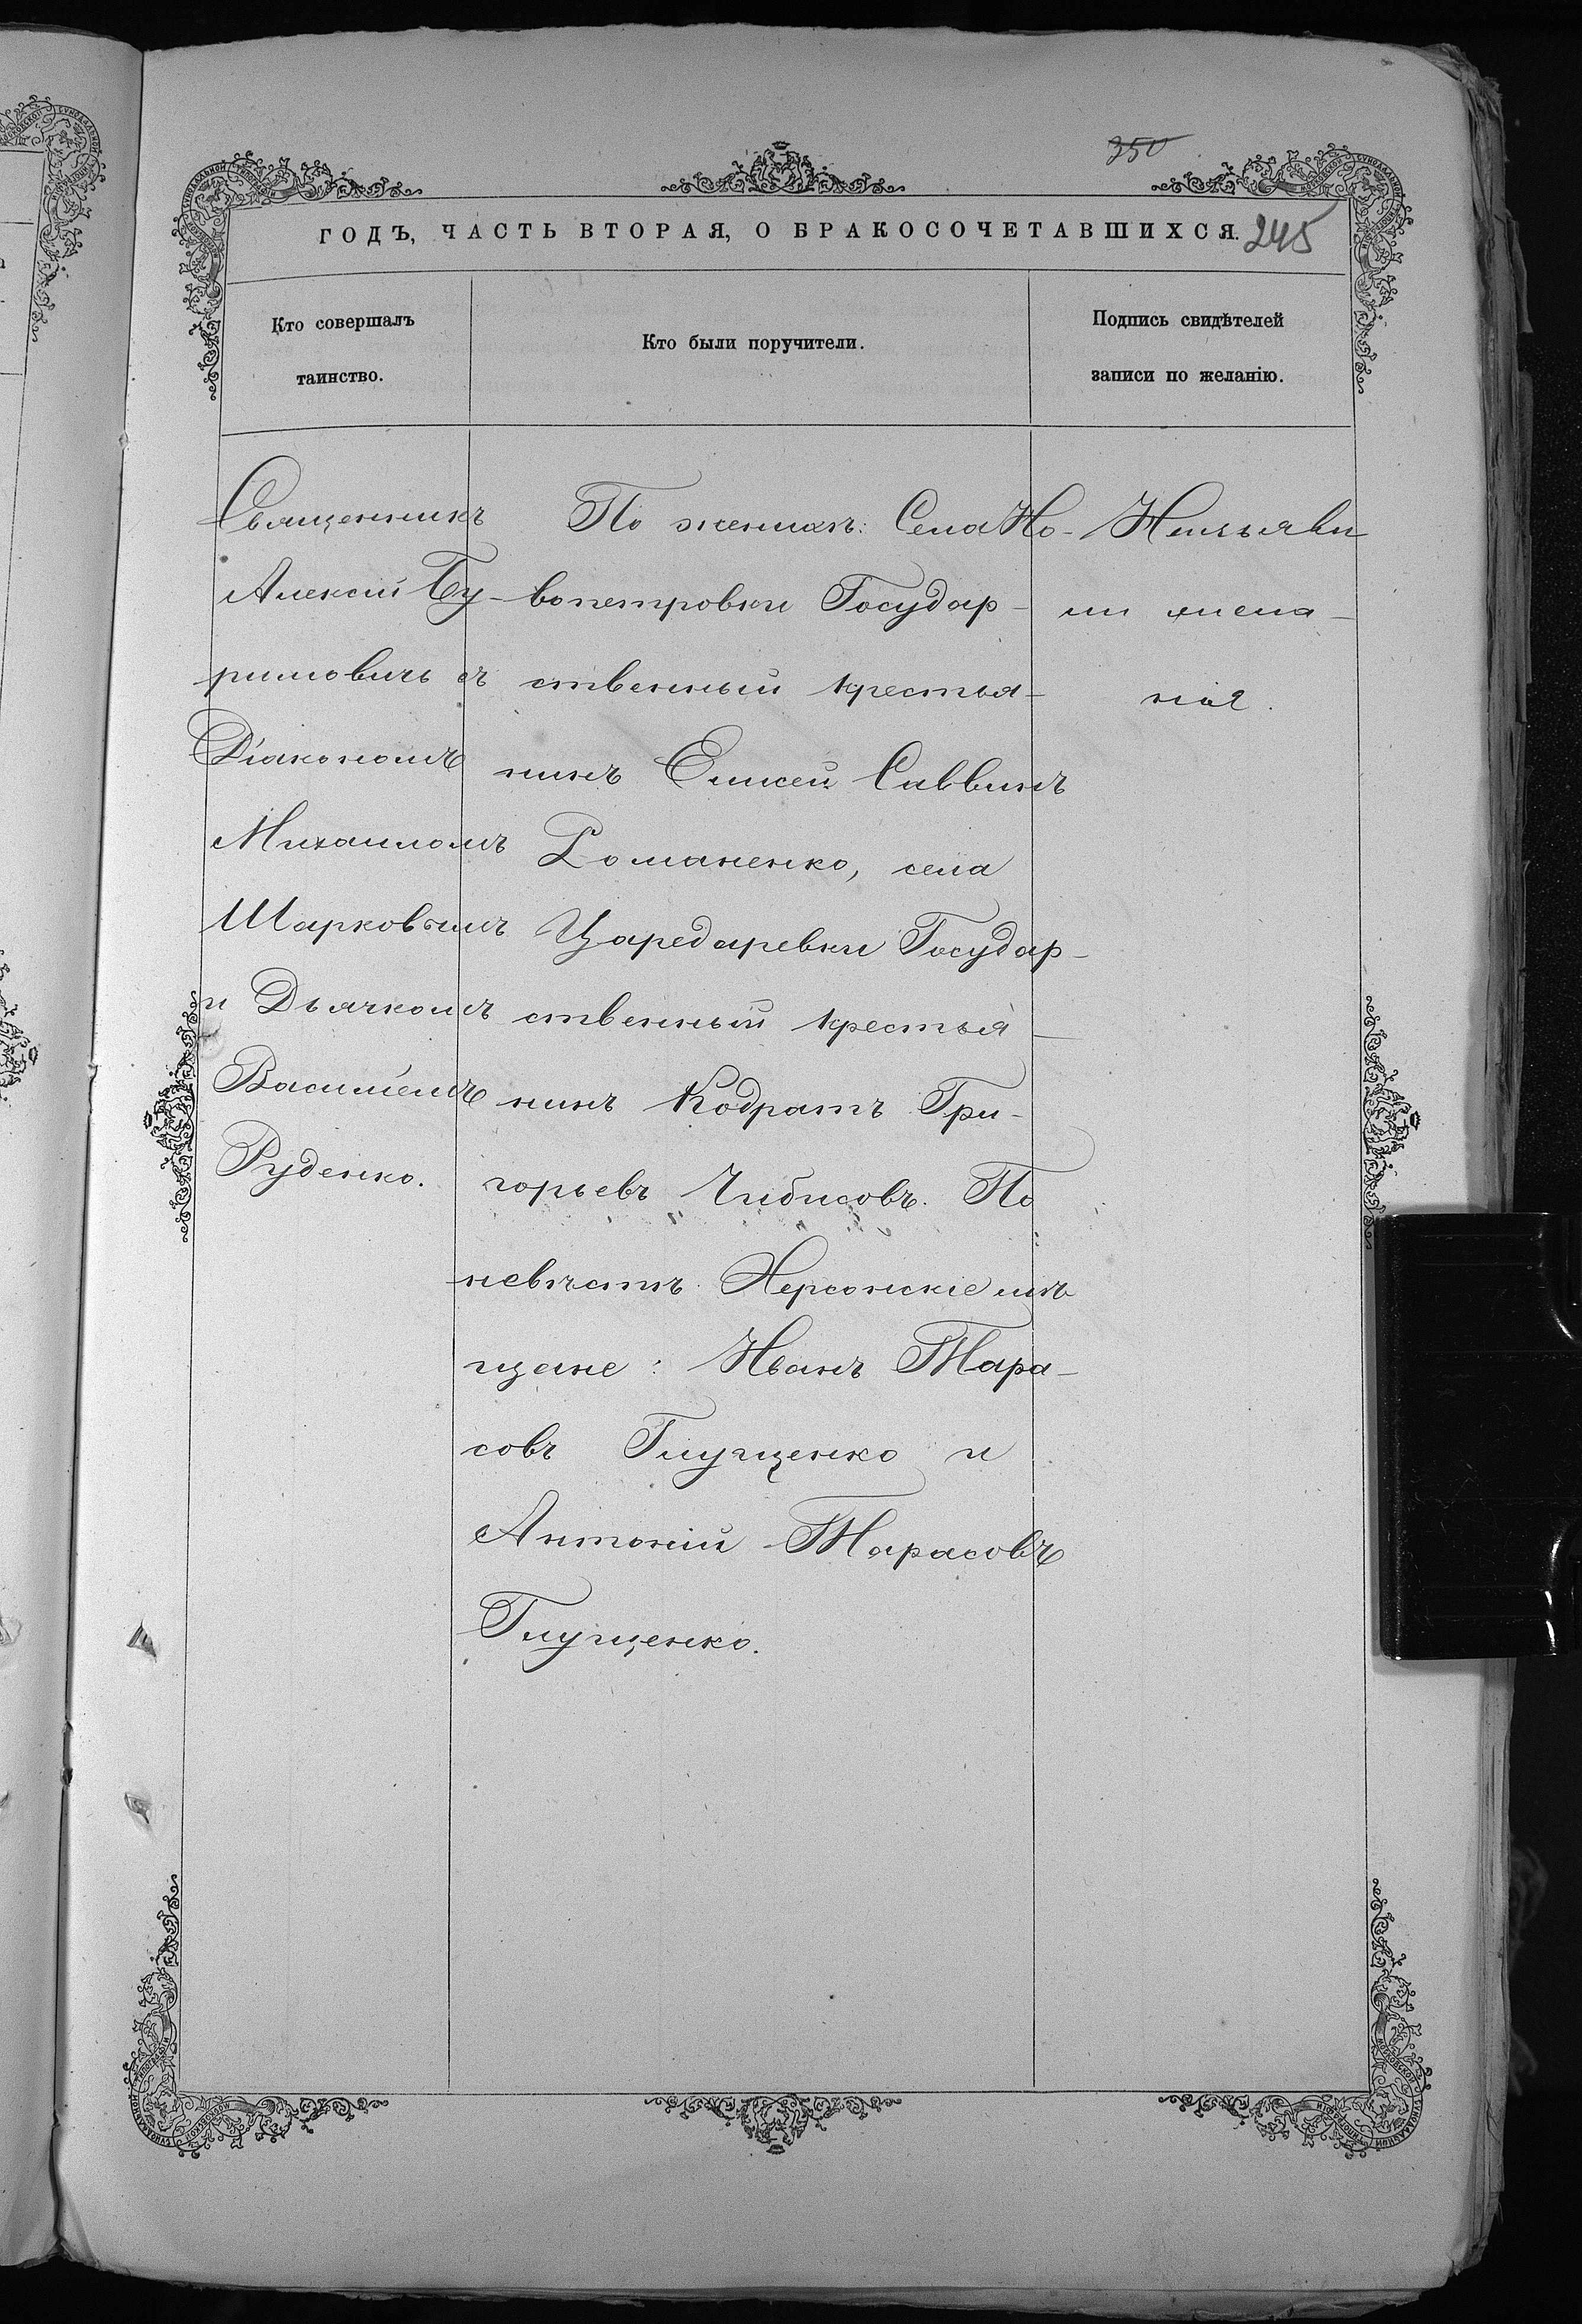 350
ГОДЪ, ЧАСТЬ ВТОРАЯ, О БРАКОСОЧЕТАВШИХСЯ.
245
Кто совершалъ
таинство.
Кто были поручители.
Подпись свидѣтелей
записи по желанію.
Священникъ
Алексій Бу-
римовичъ съ
Діакономъ
Михаиломъ
Шарковымъ
и Дьячкомъ
Василіемъ
Руденко.
По женихѣ: Села Но-
вопетровки Государ-
ственный крестья-
нинъ Елисей Саввинъ
Романенко, села
Царедаревки Государ-
ственный крестья-
нинъ Кодратъ Гри-
горьевъ Чибисовъ. По
невѣстѣ Херсонскіе мѣ
щане: Иванъ Тара-
совъ Глущенко и
Антоній Тарасовъ
Глущенко.
Неизъяви
ли жела-
нія.